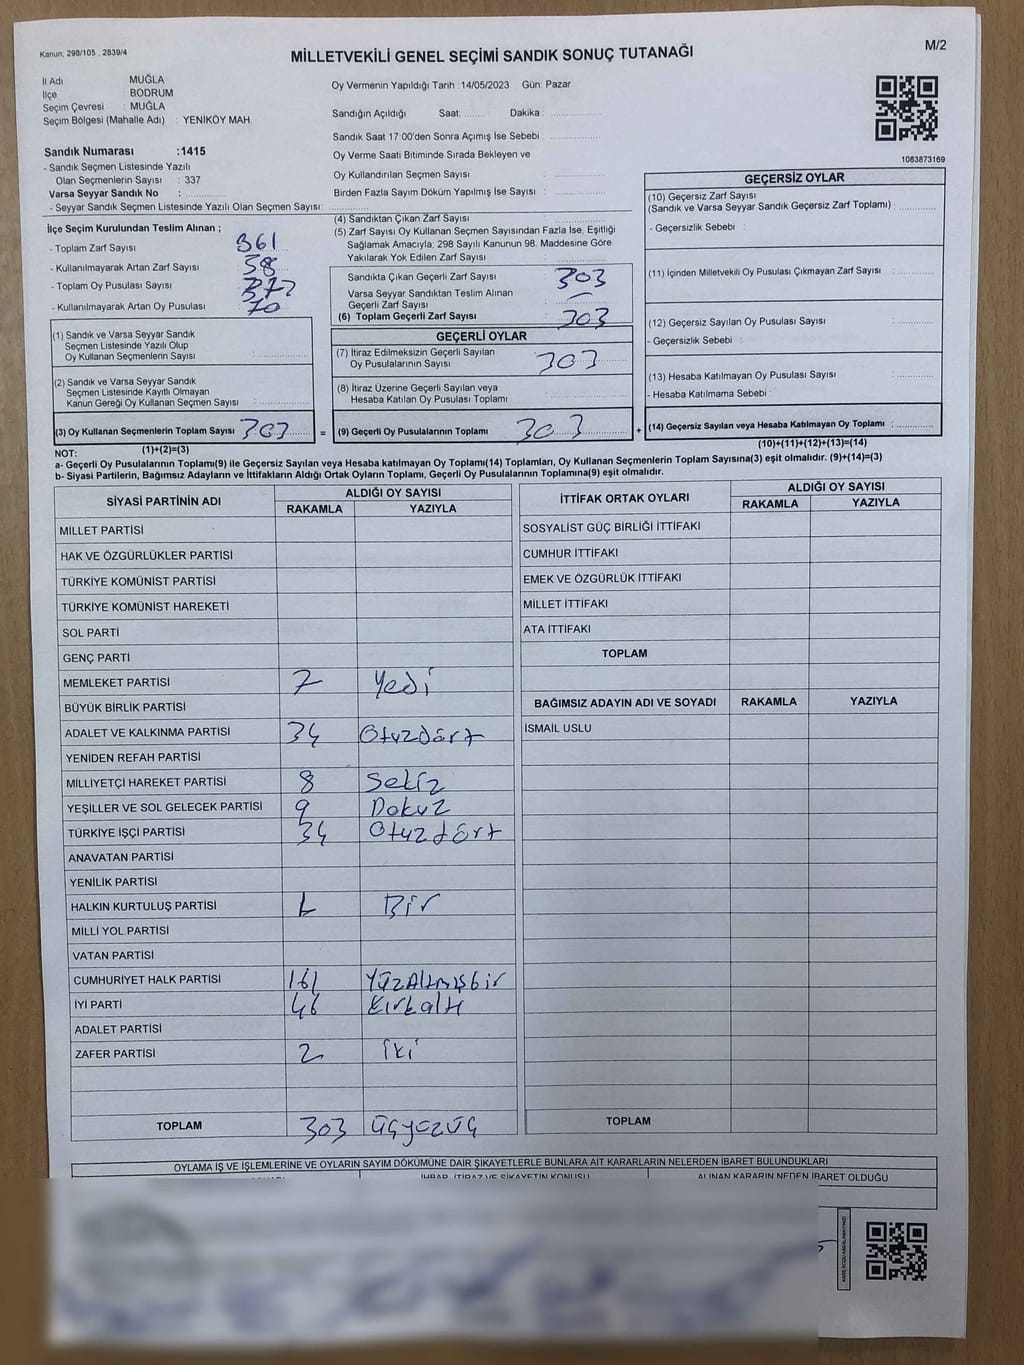 Kanun: 298/105 , 2839/4
MİLLETVEKİLİ GENEL SEÇİMİ SANDIK SONUÇ TUTANAĞI
M/2
İl Adı : MUĞLA
İlçe : BODRUM
Seçim Çevresi : MUĞLA
Seçim Bölgesi (Mahalle Adı) : YENİKÖY MAH.
Sandık Numarası :1415
- Sandık Seçmen Listesinde Yazılı
Olan Seçmenlerin Sayısı : 337
Varsa Seyyar Sandık No :
- Seyyar Sandık Seçmen Listesinde Yazılı Olan Seçmen Sayısı:
Oy Vermenin Yapıldığı Tarih :14/05/2023 Gün: Pazar
Sandığın Açıldığı Saat: Dakika :
Sandık Saat 17:00'den Sonra Açımış İse Sebebi :
Oy Verme Saati Bitiminde Sırada Bekleyen ve
Oy Kullandırılan Seçmen Sayısı :
Birden Fazla Sayım Döküm Yapılmış İse Sayısı :
1083873169
İlçe Seçim Kurulundan Teslim Alınan ;
- Toplam Zarf Sayısı : 361
- Kullanılmayarak Artan Zarf Sayısı : 58
- Toplam Oy Pusulası Sayısı :
- Kullanılmayarak Artan Oy Pusulası : 70
(1) Sandık ve Varsa Seyyar Sandık
Seçmen Listesinde Yazılı Olup
Oy Kullanan Seçmenlerin Sayısı :
(2) Sandık ve Varsa Seyyar Sandık
Seçmen Listesinde Kayıtlı Olmayan
Kanun Gereği Oy Kullanan Seçmen Sayısı :
(3) Oy Kullanan Seçmenlerin Toplam Sayısı : 303
(1)+(2)=(3)
(4) Sandıktan Çıkan Zarf Sayısı :
(5) Zarf Sayısı Oy Kullanan Seçmen Sayısından Fazla İse, Eşitliği
Sağlamak Amacıyla; 298 Sayılı Kanunun 98. Maddesine Göre
Yakılarak Yok Edilen Zarf Sayısı :
Sandıkta Çıkan Geçerli Zarf Sayısı : 303
Varsa Seyyar Sandıktan Teslim Alınan
Geçerli Zarf Sayısı : —
(6) Toplam Geçerli Zarf Sayısı : 303
GEÇERLİ OYLAR
(7) İtiraz Edilmeksizin Geçerli Sayılan
Oy Pusulalarının Sayısı : 303
(8) İtiraz Üzerine Geçerli Sayılan veya
Hesaba Katılan Oy Pusulası Toplamı :
= (9) Geçerli Oy Pusulalarının Toplamı : 303
GEÇERSİZ OYLAR
(10) Geçersiz Zarf Sayısı
(Sandık ve Varsa Seyyar Sandık Geçersiz Zarf Toplamı) :
- Geçersizlik Sebebi :
(11) İçinden Milletvekili Oy Pusulası Çıkmayan Zarf Sayısı :
(12) Geçersiz Sayılan Oy Pusulası Sayısı :
- Geçersizlik Sebebi :
(13) Hesaba Katılmayan Oy Pusulası Sayısı :
- Hesaba Katılmama Sebebi :
+ (14) Geçersiz Sayılan veya Hesaba Katılmayan Oy Toplamı :
(10)+(11)+(12)+(13)=(14)
NOT:
a- Geçerli Oy Pusulalarının Toplamı(9) ile Geçersiz Sayılan veya Hesaba katılmayan Oy Toplamı(14) Toplamları, Oy Kullanan Seçmenlerin Toplam Sayısına(3) eşit olmalıdır. (9)+(14)=(3)
b- Siyasi Partilerin, Bağımsız Adayların ve İttifakların Aldığı Ortak Oyların Toplamı, Geçerli Oy Pusulalarının Toplamına(9) eşit olmalıdır.
SİYASİ PARTİNİN ADI ALDIĞI OY SAYISI
RAKAMLA YAZIYLA
MİLLET PARTİSİ
HAK VE ÖZGÜRLÜKLER PARTİSİ
TÜRKİYE KOMÜNİST PARTİSİ
TÜRKİYE KOMÜNİST HAREKETİ
SOL PARTİ
GENÇ PARTİ
MEMLEKET PARTİSİ 7 Yedi
BÜYÜK BİRLİK PARTİSİ
ADALET VE KALKINMA PARTİSİ 34 Otuzdört
YENİDEN REFAH PARTİSİ
MİLLİYETÇİ HAREKET PARTİSİ 8 Sekiz
YEŞİLLER VE SOL GELECEK PARTİSİ 9 Dokuz
TÜRKİYE İŞÇİ PARTİSİ 34 Otuzdört
ANAVATAN PARTİSİ
YENİLİK PARTİSİ
HALKIN KURTULUŞ PARTİSİ 1 Bir
MİLLİ YOL PARTİSİ
VATAN PARTİSİ
CUMHURİYET HALK PARTİSİ 161 YüzAltmışbir
İYİ PARTİ 46 Kırkaltı
ADALET PARTİSİ
ZAFER PARTİSİ 2 İki
TOPLAM 303 Üçyüzüç
İTTİFAK ORTAK OYLARI ALDIĞI OY SAYISI
RAKAMLA YAZIYLA
SOSYALİST GÜÇ BİRLİĞİ İTTİFAKI
CUMHUR İTTİFAKI
EMEK VE ÖZGÜRLÜK İTTİFAKI
MİLLET İTTİFAKI
ATA İTTİFAKI
TOPLAM
BAĞIMSIZ ADAYIN ADI VE SOYADI RAKAMLA YAZIYLA
İSMAİL USLU
TOPLAM
OYLAMA İŞ VE İŞLEMLERİNE VE OYLARIN SAYIM DÖKÜMÜNE DAİR ŞİKAYETLERLE BUNLARA AİT KARARLARIN NELERDEN İBARET BULUNDUKLARI
İHBAR, İTİRAZ VE ŞİKAYETİN KONUSU ALINAN KARARIN NEDEN İBARET OLDUĞU